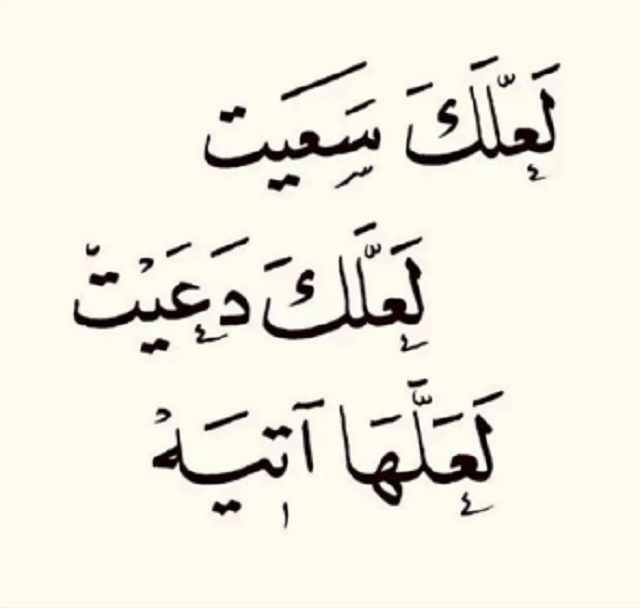 لَعَلَّكَ سَعَيت
لَعَلَّكَ دَعَيْت
لَعَلَّهَا آتيَهْ